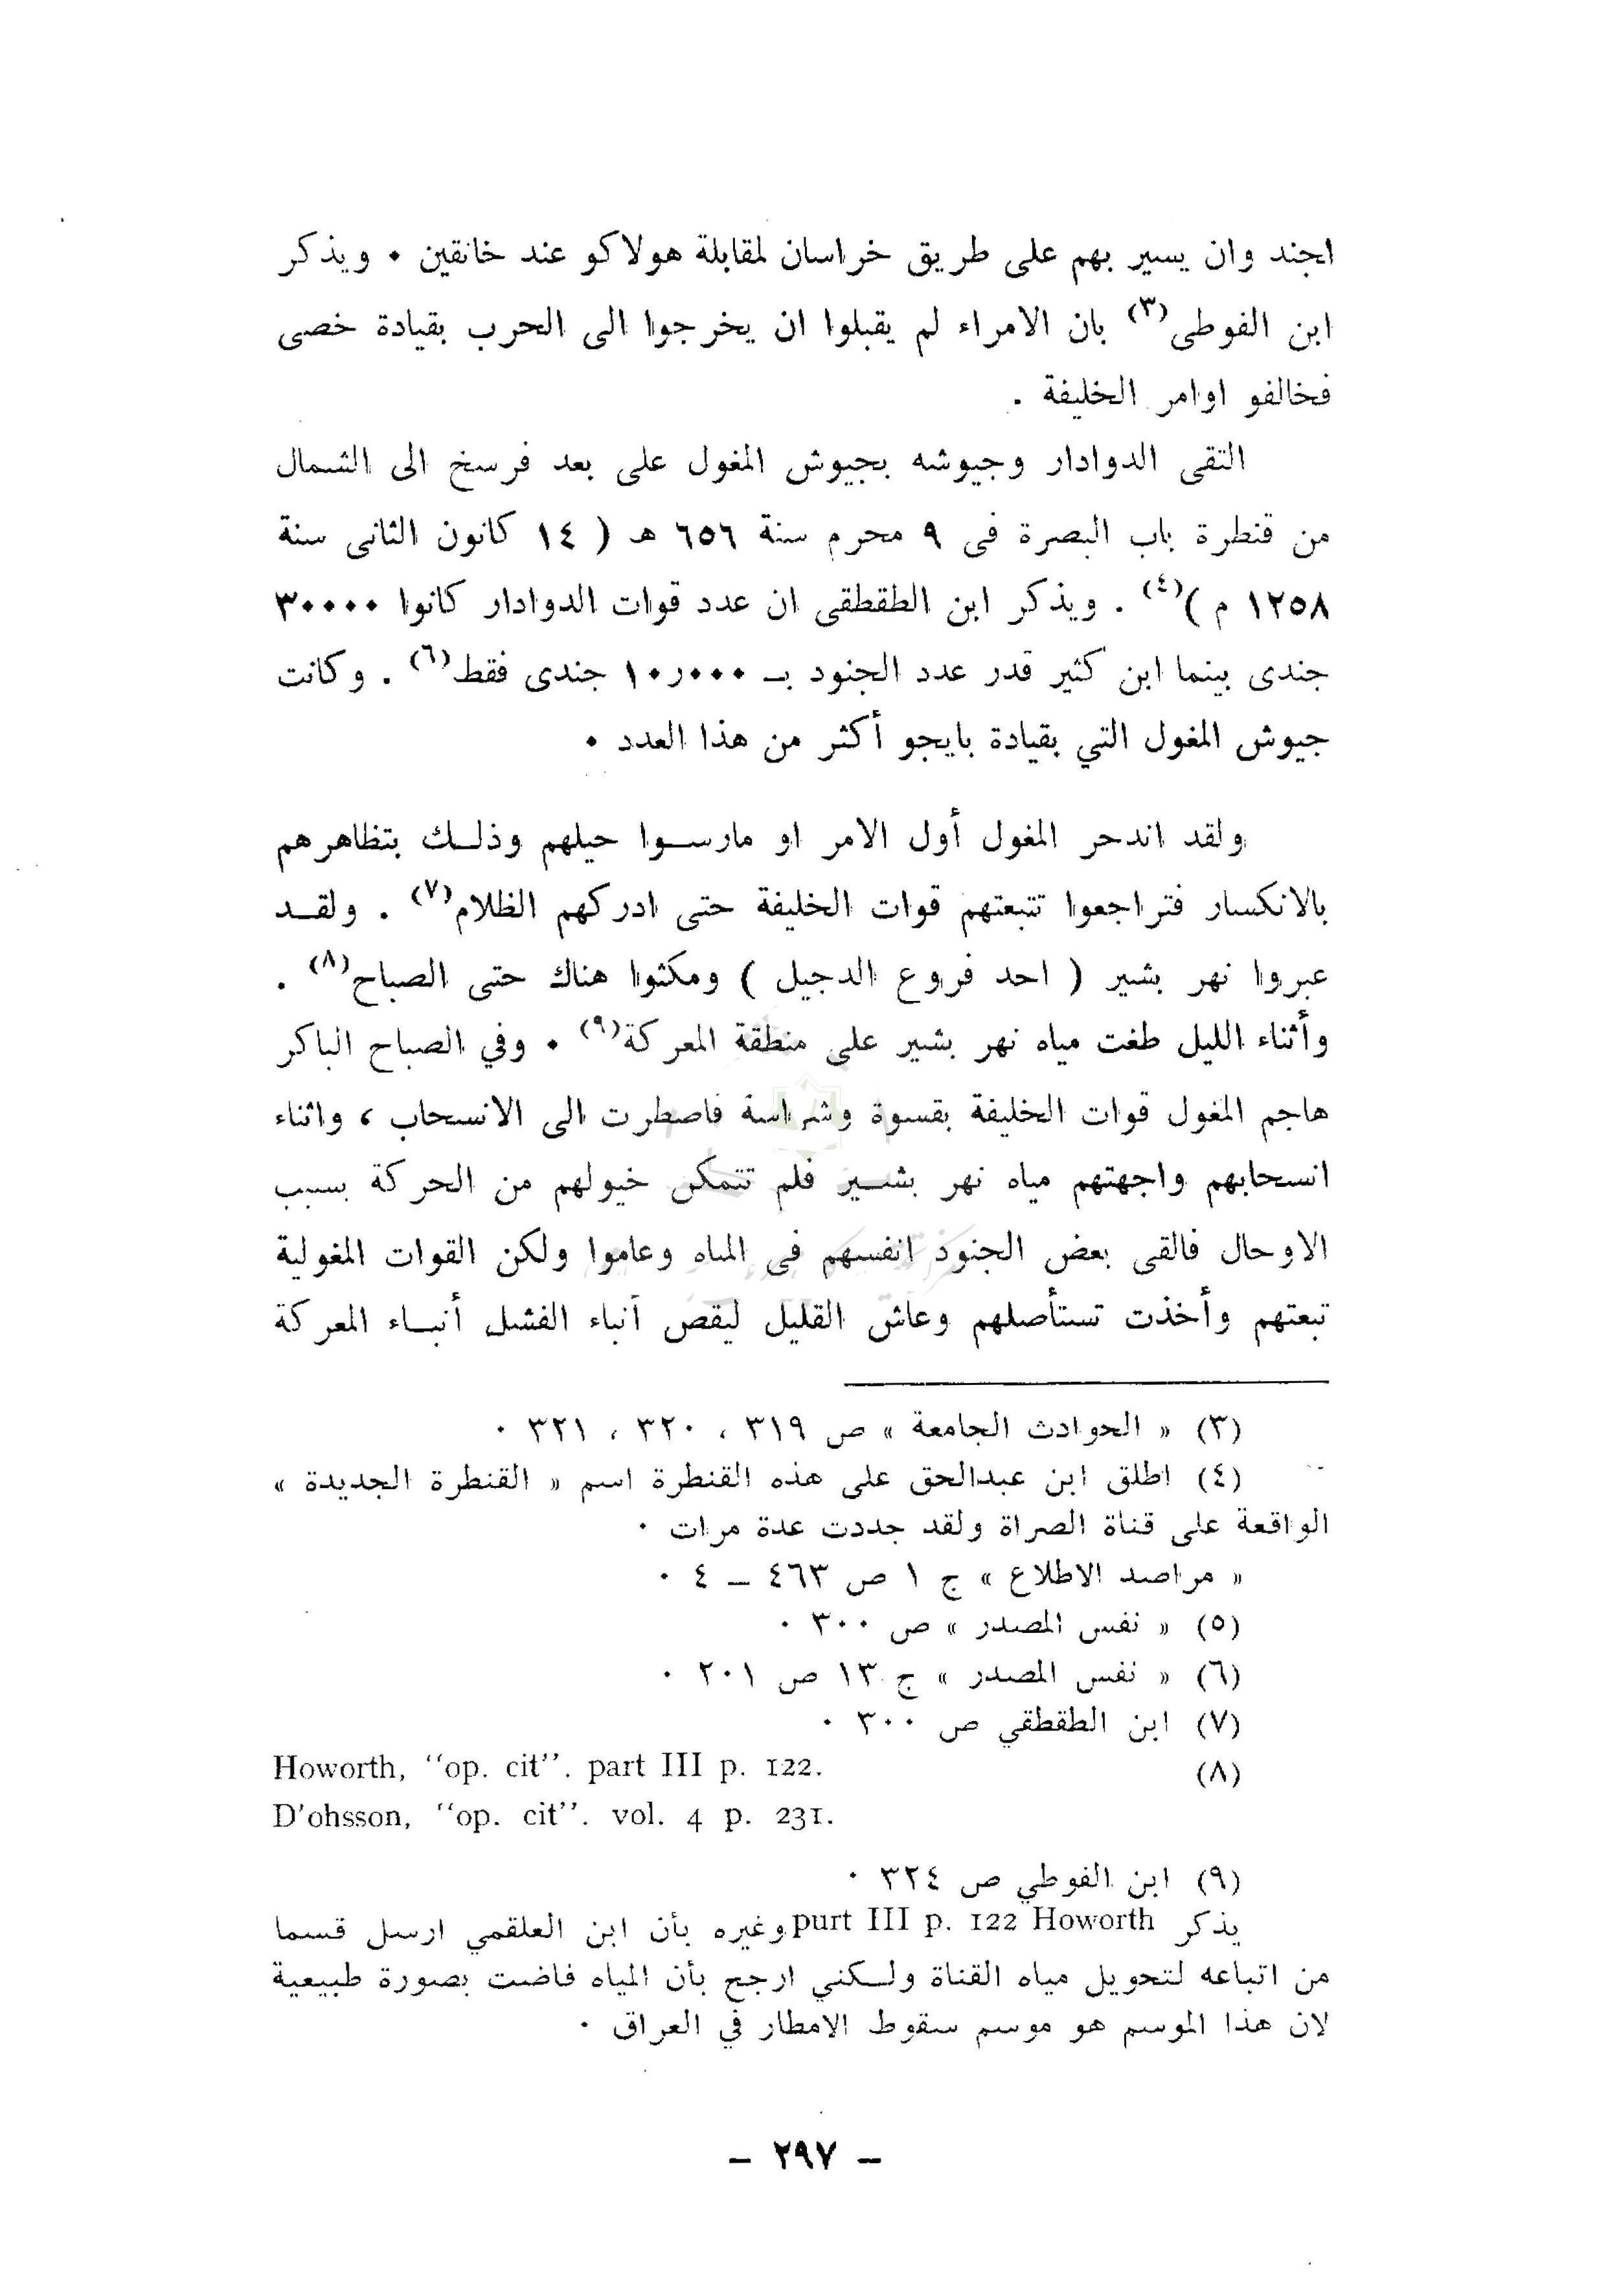 اجند وان يسير بهم على طريق خراسان لمقابلة هولاكو عند خانقين ٠ ويذكر
ابن الفوطى(٣) بان الامراء لم يقبلوا ان يخرجوا الى الحرب بقيادة خصى
فخالفو اوامر الخليفة .
التقى الدوادار وجيوشه بجيوش المغول على بعد فرسخ الى الشمال
من قنطرة باب البصرة فى ٩ محرم سنة ٦٥٦ هـ ( ١٤ كانون الثانى سنة
١٢٥٨ م )(٤) . ويذكر ابن الطقطقى ان عدد قوات الدوادار كانوا ٣٠٠٠٠
جندى بينما ابن كثير قدر عدد الجنود بـ ١٠ر٠٠٠ جندى فقط(٦) . وكانت
جيوش المغول التي بقيادة بايجو أكثر من هذا العدد ٠
ولقد اندحر المغول أول الامر او مارسـوا حيلهم وذلـك بتظاهرهم
بالانكسار فتراجعوا تتبعتهم قوات الخليفة حتى ادركهم الظلام(٧) . ولقـد
عبروا نهر بشير ( احد فروع الدجيل ) ومكثوا هناك حتى الصباح(٨) .
وأثناء الليل طغت مياه نهر بشير على منطقة المعركة(٩) ٠ وفي الصباح الباكر
هاجم المغول قوات الخليفة بقسوة وشراسة فاصطرت الى الانسحاب ، واثناء
انسحابهم واجهتهم مياه نهر بشـير فلم تتمكن خيولهم من الحركة بسبب
الاوحال فالقى بعض الجنود انفسهم فى المياه وعاموا ولكن القوات المغولية
تبعتهم وأخذت تستأصلهم وعاش القليل ليقص أنباء الفشل أنبـاء المعركة
(٣) « الحوادث الجامعة » ص ٣١٩ ، ٣٢٠ ، ٣٢١ ٠
(٤) اطلق ابن عبدالحق على هذه القنطرة اسم « القنطرة الجديدة »
الواقعة على قناة الصراة ولقد جددت عدة مرات ٠
« مراصد الاطلاع » ج ١ ص ٤٦٣ ــ ٤ ٠
(٥) « نفس المصدر » ص ٣٠٠ ٠
(٦) « نفس المصدر » ج ١٣ ص ٢٠١ ٠
(٧) ابن الطقطقي ص ٣٠٠ ٠
(٨) Howorth, "op. cit". part III p. 122.
D'ohsson, "op. cit". vol. 4 p. 231.
(٩) ابن الفوطي ص ٣٢٤ ٠
يذكر purt III p. 122 Howorth وغيره بأن ابن العلقمي ارسل قسما
من اتباعه لتحويل مياه القناة ولـكني ارجح بأن المياه فاضت بصورة طبيعية
لان هذا الموسم هو موسم سقوط الامطار في العراق ٠
– ٢٩٧ –